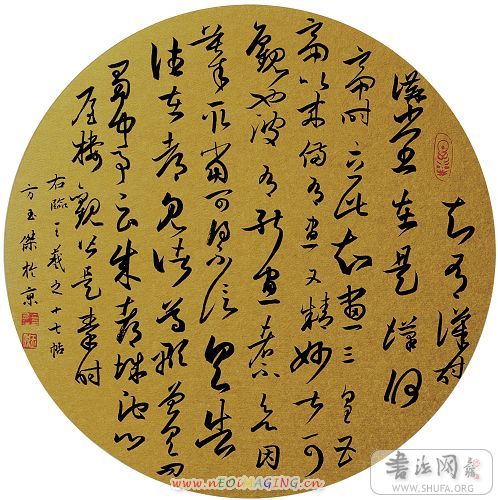 知有漢時
講堂在是漢何
帝時立此知畫三皇五
帝以來備有畫又精妙甚可
觀也彼有能畫者不欲因
摹取當可得不信具告
往在都見諸葛顒曾具問
蜀中事云成都城池門
屋樓觀皆是秦時
右臨王羲之十七帖
方玉傑於京
www.nEOiMAGING.cn
书法网
WWW.SHUFA.ORG